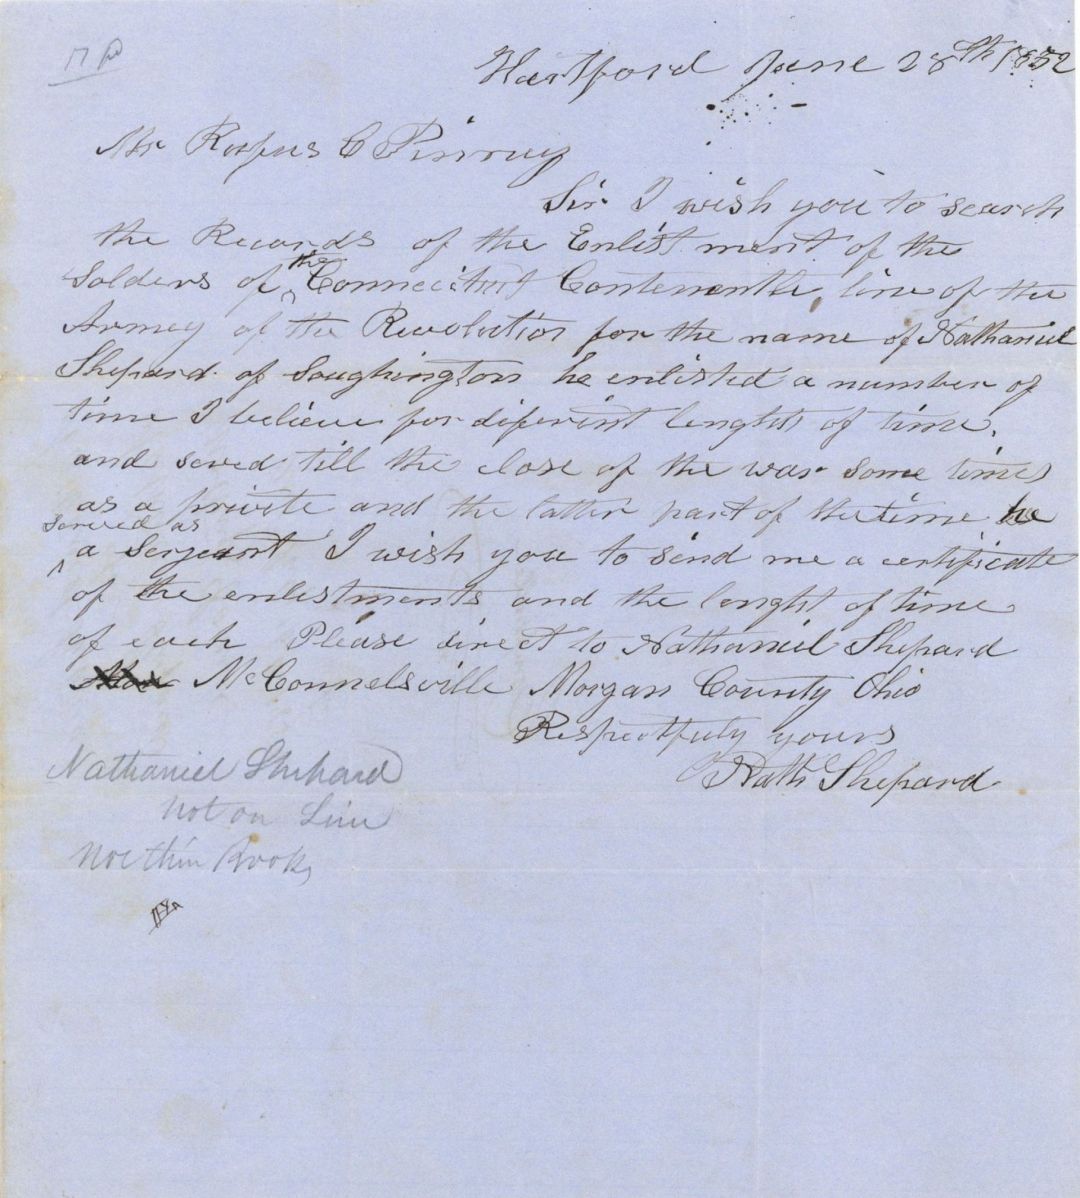 Hartford June 28th 1852
Mr Roofus C Pinney
Sir I wish you to search
the Records of the Enlistment of the
Solders of the Connecticut Contenenthe, line of the
Army of the Revolution for the name of Nathaniel
Shepard of Soughington he enlisted a number of
time I believe for diferent lenghts of time.
and served till the close of the war some times
as a privite and the latter part of the time he
served as a Serjeant I wish you to send me a certificate
of the enlistments and the lenght of time
of each Please direct to Nathaniel Shepard
McConnelsville Morgan County Ohio
Respectfuly yours
Nathl Shepard
Nathaniel Shepard
Not on Line
Nor this Book,